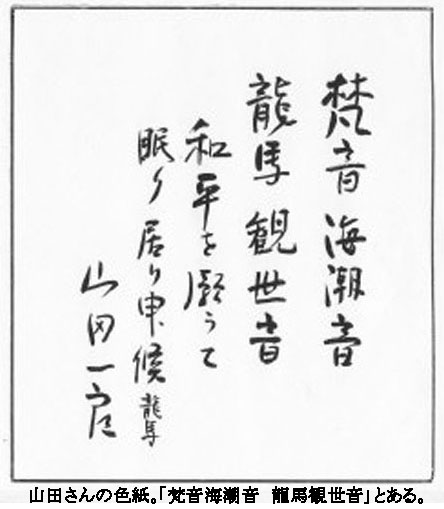 梵音海潮音
龍馬観世音
和平を願うて
眠り居り申候 龍馬
山田一
山田さんの色紙。「梵音海潮音　龍馬観世音」とある。